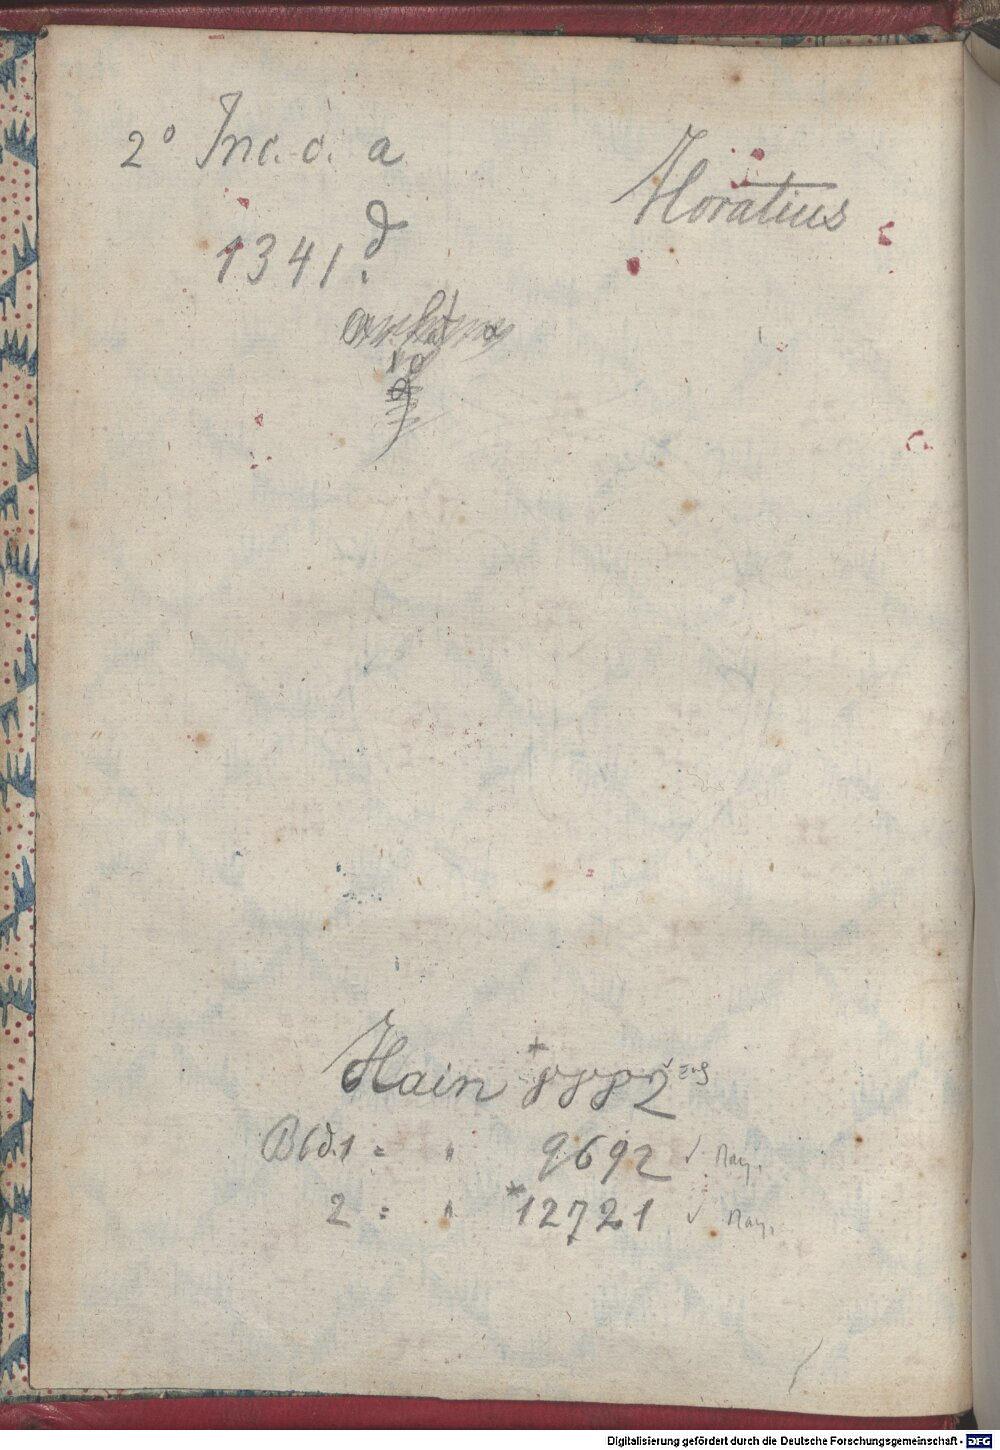 2° Inc. c. a
Horatius
1341 d
Hain * 8882
Bd. 1 = " 9692 ✓
2 = " *12721 ✓
Digitalisierung gefördert durch die Deutsche Forschungsgemeinschaft - DFG